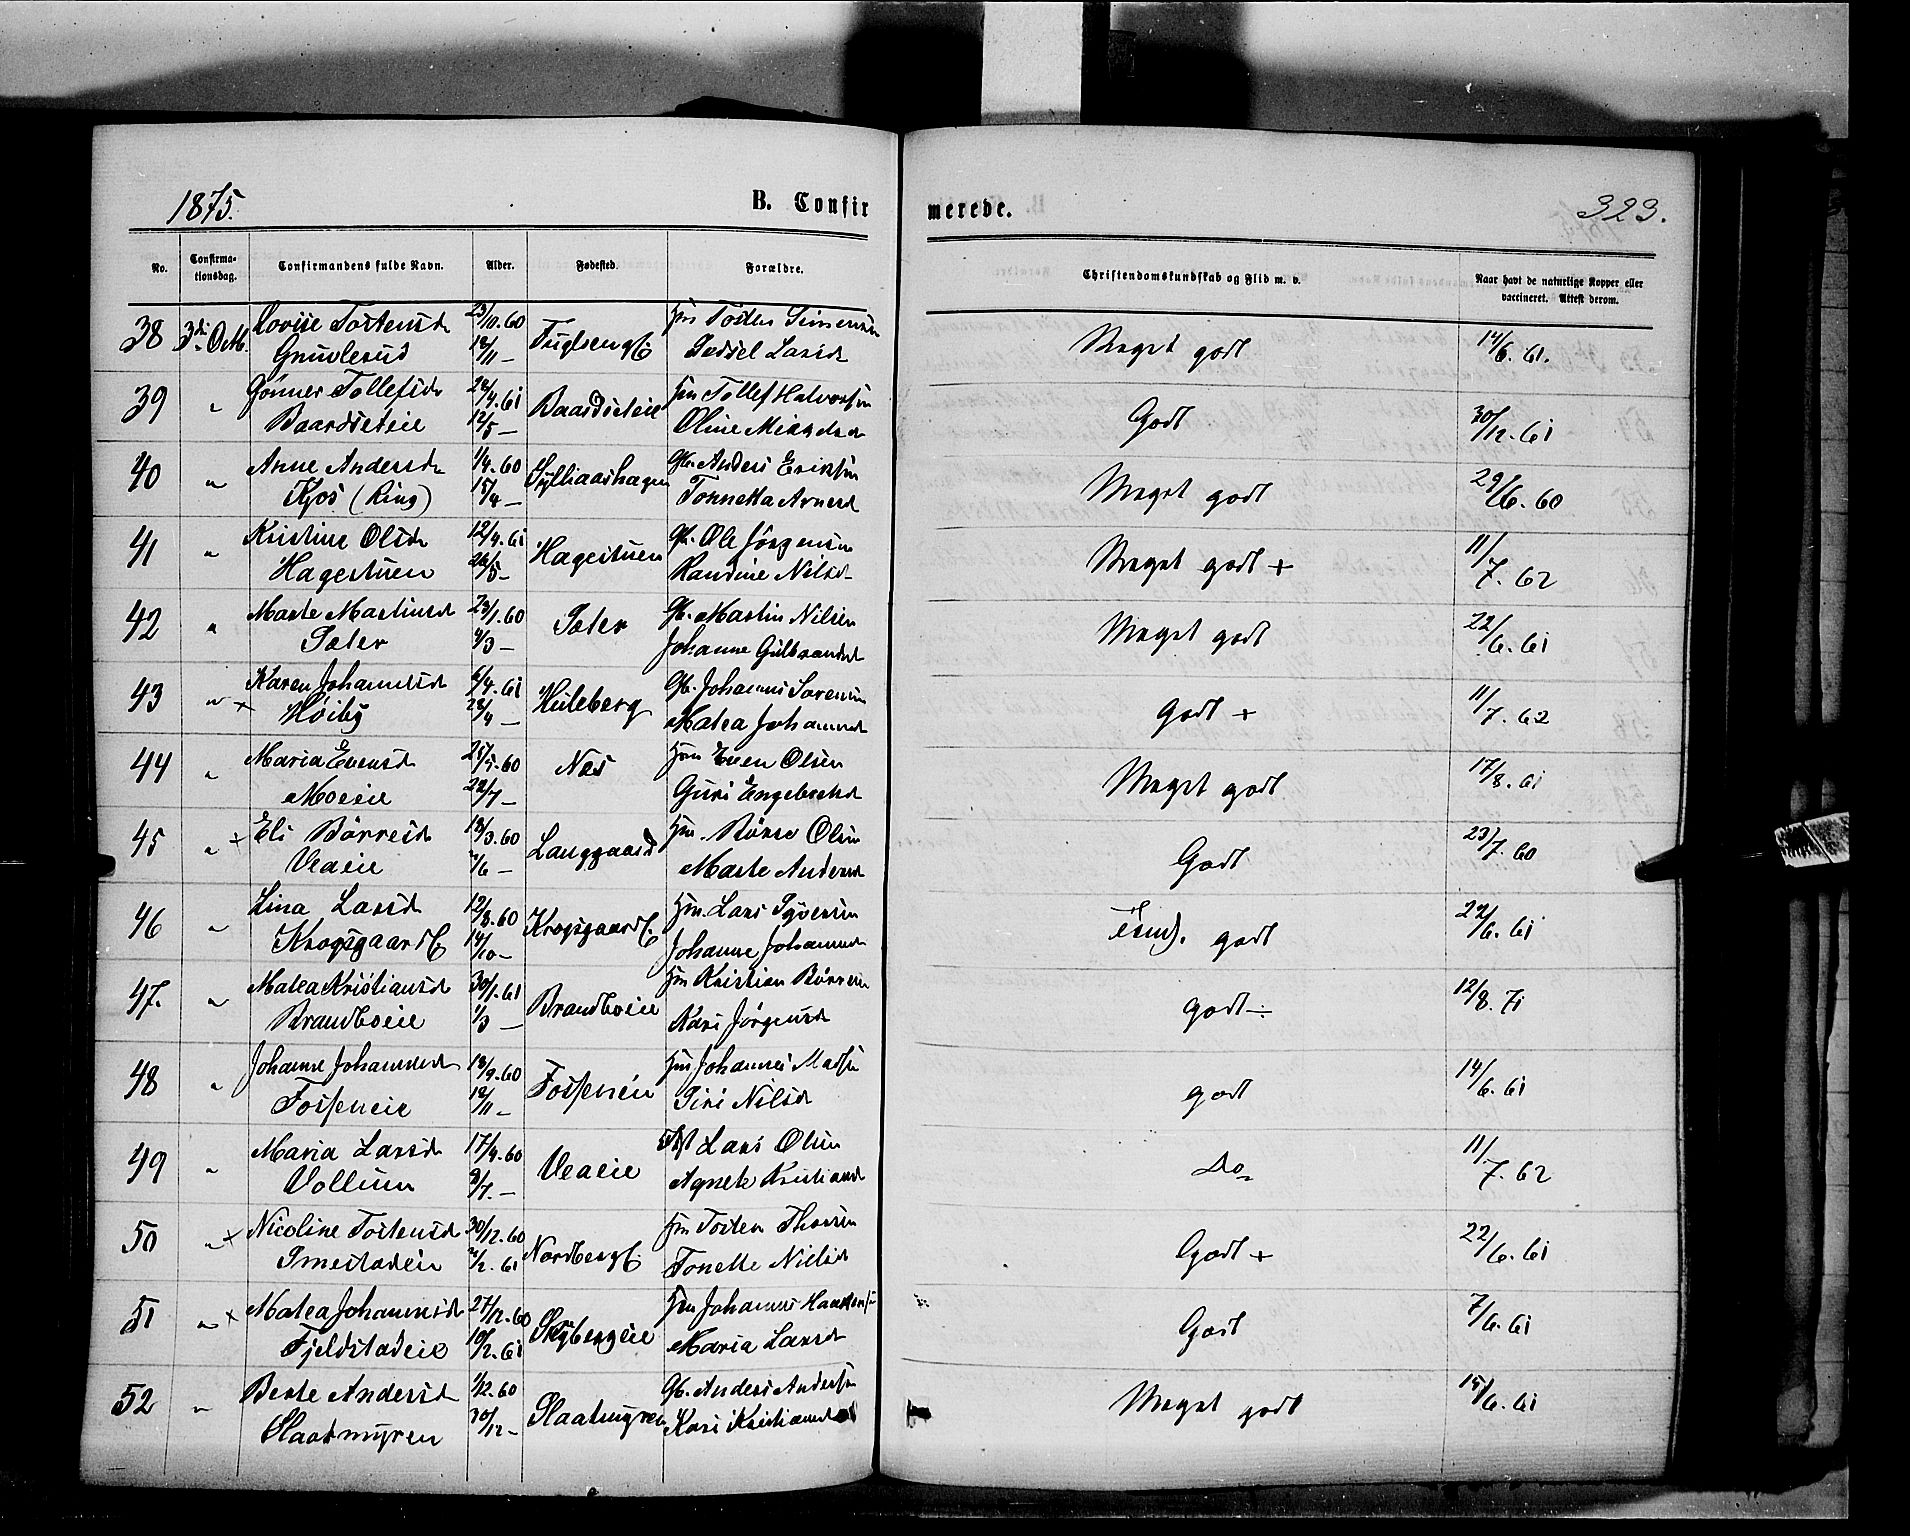 1875.
B. Confir
merede.
323.
No.
Confirma-
tionsdag.
Confirmandens fulde Navn.
Alder.
Fødested.
Forældre.
Christendomskundskab og Flid m. v.
Naar havt de naturlige Kopper eller
vaccineret. Attest derom.
38 3die Octb. Lovise Tostensd 23/10.60 Hm Tosten Simensen
12/11 — Sidsel Larsd Meget godt 14/6. 61.
39 " Gönner Tollefsd 28/4.61 Baardseteie Hm Tollef Halvorsen
Baardseteie 12/5 — Oline Mikkelsd Godt 30/12. 61
40 " Anne Andersd 1/4.60 Gb. Anders Eriksen
Kjos (Ring) 15/4 — Tonnetta Arnesd Meget godt 29/6. 60
41 " Kristine Olsd 12/4.61 Hagestuen Gb. Ole Jörgensen
Hagestuen 26/5 — Randine Nilsd Meget godt + 11/7. 62
42 " Marte Martinsd 23/1.60 Sæter Gb. Martin Nilsen
Sæter 4/3 — Johanne Gulbrandsd Meget godt 22/6. 61
43 " + Karen Johannesd 6/4.61 Huleberg Gb. Johannes Sørensen
Høiby 28/4 — Matea Johannesd Godt + 11/7. 62
44 " Maria Evensd 25/5.60 Næs Hm Even Olsen
Moeie 22/7 — Guri Engebretsd Meget godt 17/8. 61
45 " + Eli Börresd 18/3.60 Langgaard Hm. Börre Olsen
Veaeie /6 — Marte Andersd Godt 23/7. 60
46 " Lina Larsd 12/8.60 Krogsgaard E. Hm. Lars Syversen
Krogsgaard E 14/10 — Johanne Johannesd Temel. godt 22/6. 61
47. " Matea Kristiansd 30/1.61 Brandboeie Hm Kristian Börresen
Brandboeie 1/3 — Kari Jörgensd godt ÷ 12/8. 71
48 " Johanne Johannesd 18/9.60 Fosseneie Hm Johannes Madsen
Fosseneie 18/11 — Siri Nilsd godt 14/6. 61
49 " Maria Larsd 17/4.60 Veaeie Lars Olsen
Vollum /7. — Agnete Kristiansd Do 11/7. 62
50 " + Nicoline Tostensd 30/12.60 Nordberg E. Hm Tosten Thorsen
Imestadeie /2. 61 Tonette Nilsd Godt + 22/6. 61
51 " + Matea Johannesd 27/12.60 Skybergeie Hm Johannes Haakensen
Fjeldstadeie 10/2.61 Maria Larsd Godt 7/6. 61
52 " Berte Andersd 1/12.60 Slaatmyren Gb. Anders Andersen
Slaatmyren 30/12 — Kari Kristiansd Meget godt 15/6. 61